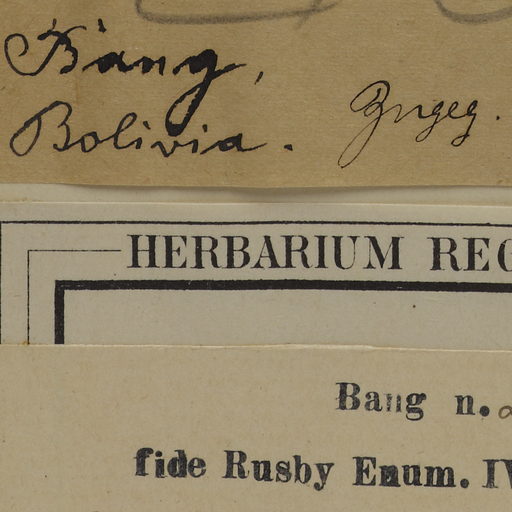 Bang,
Bolivia.
HERBARIUM REG
Bang n.
fide Rusby Enum. IV